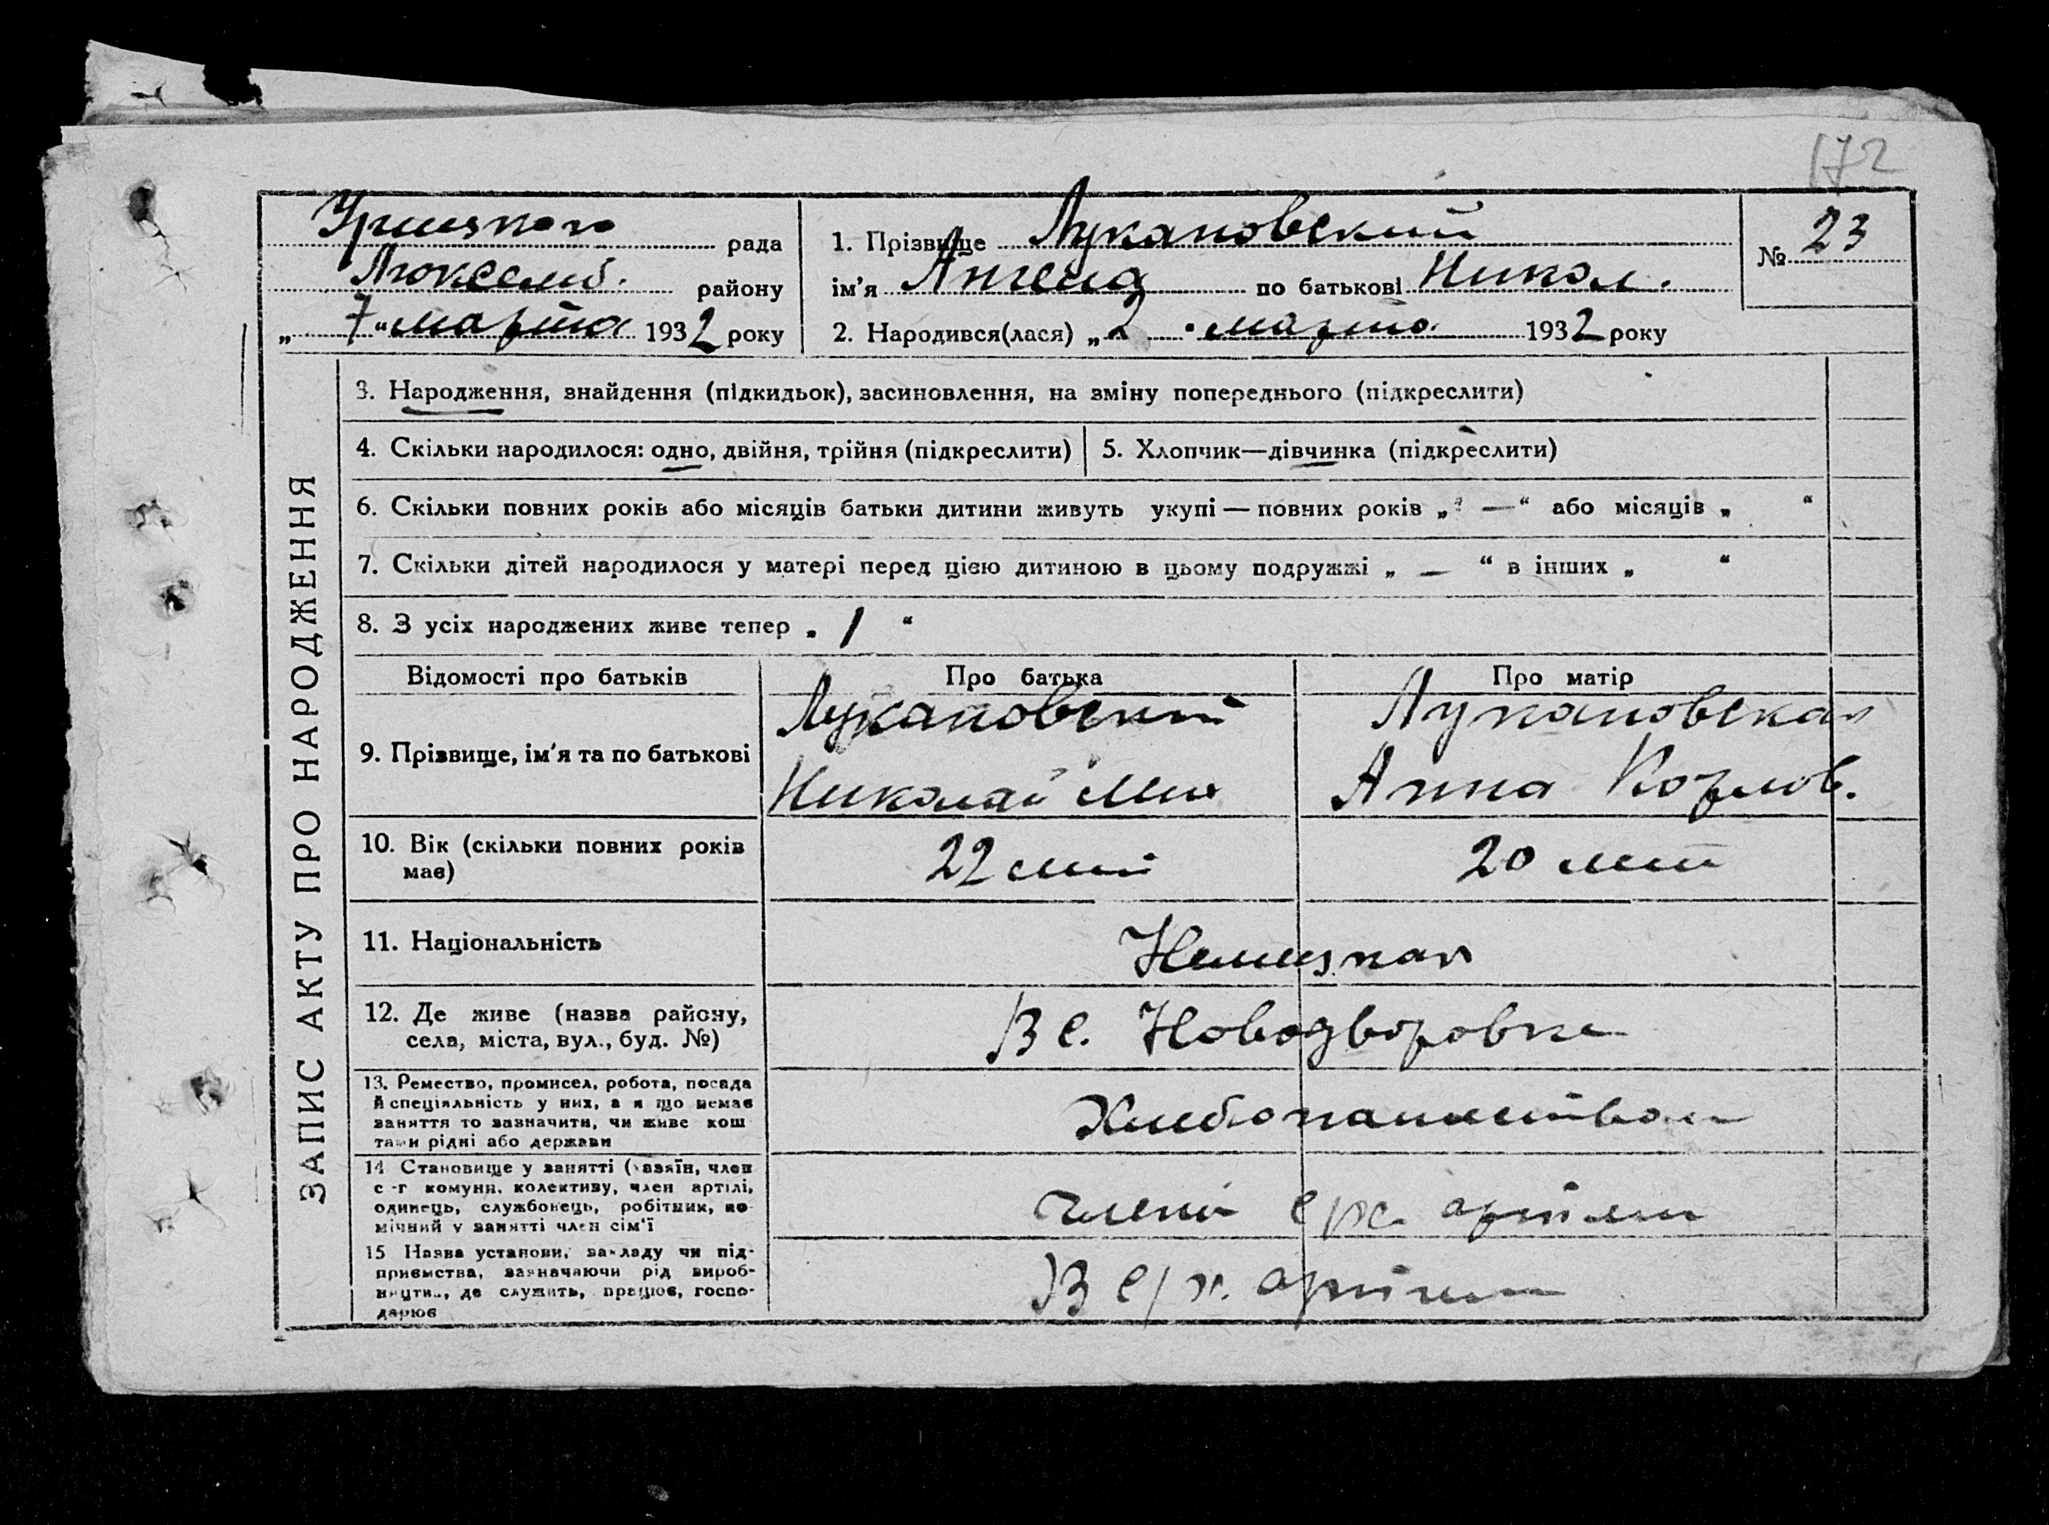 172
Урицкого рада
Люксемб. району
„ 7 “ марта 1932 року
1. Прізвище Лукановский
ім'я Ангела по батькові Никол.
2. Народився(лася) „ 2 “ марта 1932 року
№ 23
ЗАПИС АКТУ ПРО НАРОДЖЕННЯ
3. Народження, знайдення (підкидьок), засиновлення, на зміну попереднього (підкреслити)
4. Скільки народилося: одно, двійня, трійня (підкреслити)
5. Хлопчик—дівчинка (підкреслити)
6. Скільки повних років або місяців батьки дитини живуть укупі — повних років „ — “ або місяців „ “
7. Скільки дітей народилося у матері перед цією дитиною в цьому подружжі „ — “ в інших „ “
8. З усіх народжених живе тепер „ 1 “
Відомості про батьків
Про батька
Про матір
9. Прізвище, ім'я та по батькові
Лукановский
Николай
Лукановская
Анна
10. Вік (скільки повних років
має)
22 лет
20 лет
11. Національність
Немецкая
12. Де живе (назва району,
села, міста, вул., буд. №)
В с. Новодворовке
13. Ремество, промисел, робота, посада
й спеціяльність у них, а я що немає
заняття то зазначити, чи живе кош
тами рідні або держави
Хлебопашеством
14 Становище у занятті (хазяїн, член
с-г комуни, колективу, член артілі,
одинець, службовець, робітник, по-
мічний у занятті член сім'ї
член с/х. артели
15 Назва установи, закладу чи під-
приємства, зазначаючи рід вироб-
ництва, де служить, працює, госпо-
дарює
В с/х. артели